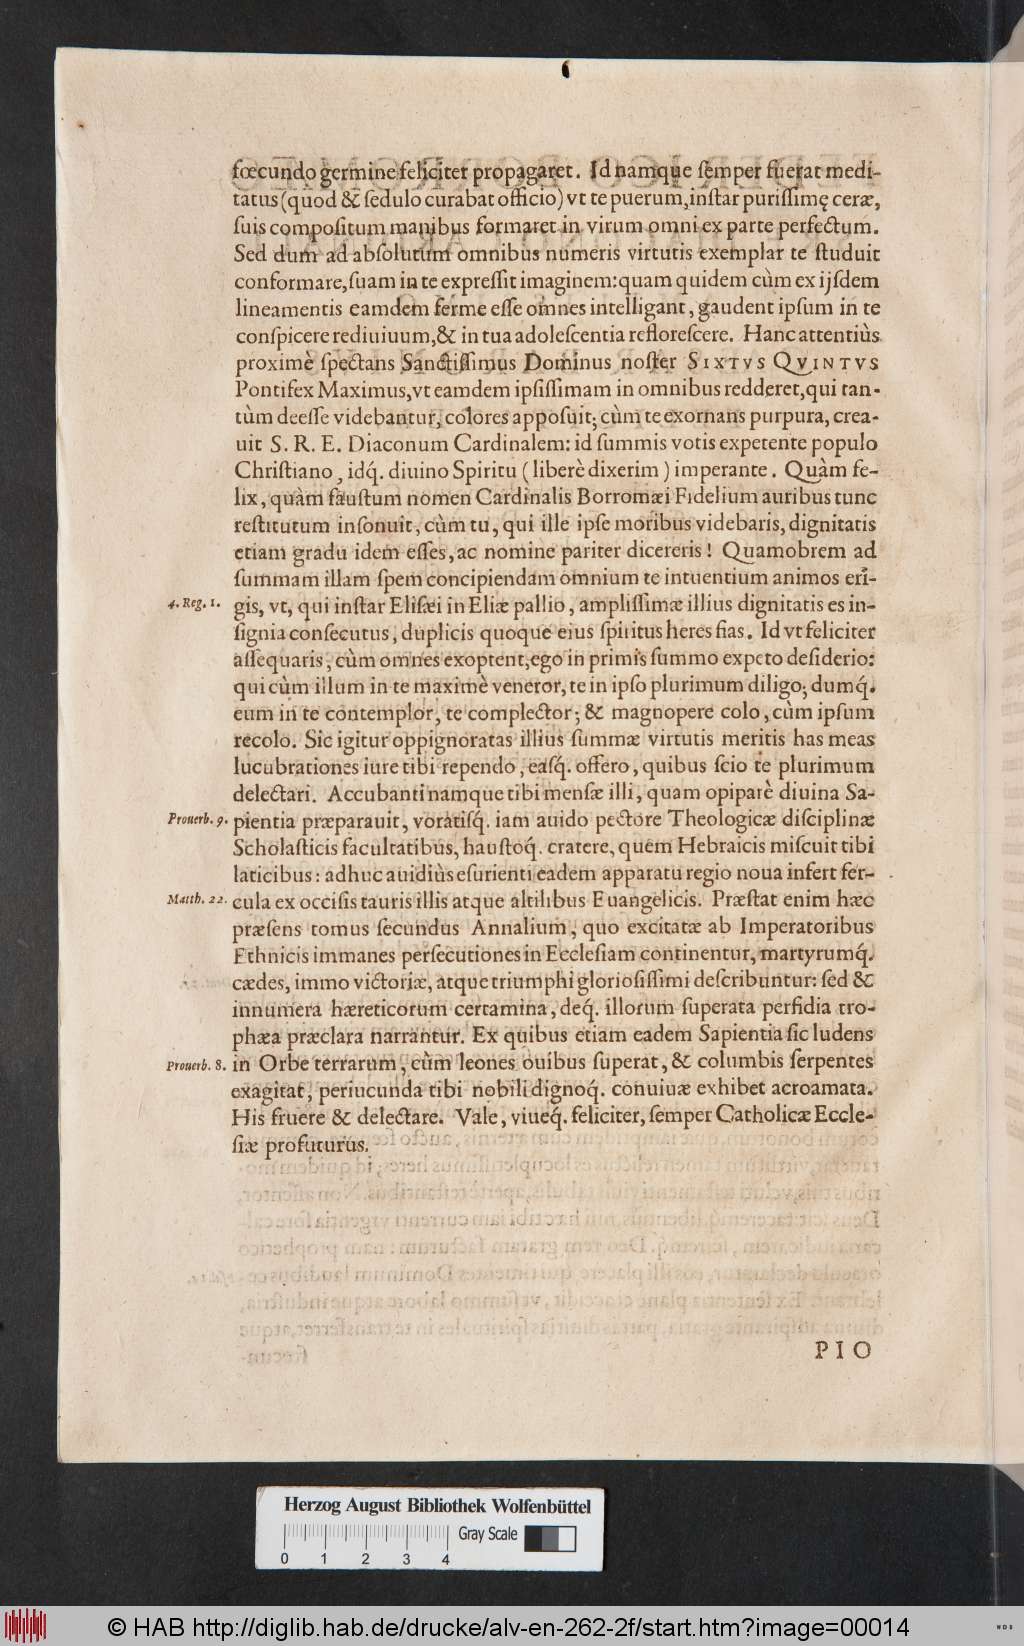 fœcundo germine feliciter propagaret. Id namque ſemper fuerat medi-
tatus (quod & ſedulo curabat officio) vt te puerum, inſtar puriſſimę ceræ,
ſuis compoſitum manibus formaret in virum omni ex parte perfectum.
Sed dum ad abſolutum omnibus numeris virtutis exemplar te ſtuduit
conformare, ſuam in te expreſſit imaginem: quam quidem cùm ex ijſdem
lineamentis eamdem ferme eſſe omnes intelligant, gaudent ipſum in te
conſpicere rediuiuum, & in tua adoleſcentia refloreſcere. Hanc attentiùs
proximè ſpectans Sanctiſſimus Dominus noſter SIXTVS QVINTVS
Pontifex Maximus, vt eamdem ipſiſſimam in omnibus redderet, qui tan-
tùm deeſſe videbantur, colores appoſuit; cùm te exornans purpura, crea-
uit S. R. E. Diaconum Cardinalem: id ſummis votis expetente populo
Chriſtiano, idq́. diuino Spiritu (liberè dixerim) imperante. Quàm fe-
lix, quàm fauſtum nomen Cardinalis Borromæi Fidelium auribus tunc
reſtitutum inſonuit, cùm tu, qui ille ipſe moribus videbaris, dignitatis
etiam gradu idem eſſes, ac nomine pariter dicereris! Quamobrem ad
ſummam illam ſpem concipiendam omnium te intuentium animos eri-
4. Reg. 1. gis, vt, qui inſtar Eliſæi in Eliæ pallio, ampliſſimæ illius dignitatis es in-
ſignia conſecutus, duplicis quoque eius ſpiritus heres fias. Id vt feliciter
aſſequaris, cùm omnes exoptent, ego in primis ſummo expeto deſiderio:
qui cùm illum in te maximè veneror, te in ipſo plurimum diligo; dumq́.
eum in te contemplor, te complector; & magnopere colo, cùm ipſum
recolo. Sic igitur oppignoratas illius ſummæ virtutis meritis has meas
lucubrationes iure tibi rependo, eaſq́. offero, quibus ſcio te plurimum
delectari. Accubanti namque tibi menſæ illi, quam opiparè diuina Sa-
Prouerb. 9. pientia præparauit, voratiſq́. iam auido pectore Theologicæ diſciplinæ
Scholaſticis facultatibus, hauſtoq́. cratere, quem Hebraicis miſcuit tibi
laticibus: adhuc auidiùs eſurienti eadem apparatu regio noua infert fer-
Matth. 22. cula ex occiſis tauris illis atque altilibus Euangelicis. Præſtat enim hæc
præſens tomus ſecundus Annalium, quo excitatæ ab Imperatoribus
Ethnicis immanes perſecutiones in Eccleſiam continentur, martyrumq́.
cædes, immo victoriæ, atque triumphi glorioſiſſimi deſcribuntur: ſed &
innumera hæreticorum certamina, deq́. illorum ſuperata perfidia tro-
phæa præclara narrantur. Ex quibus etiam eadem Sapientia ſic ludens
Prouerb. 8. in Orbe terrarum, cùm leones ouibus ſuperat, & columbis ſerpentes
exagitat, periucunda tibi nobili dignoq́. conuiuæ exhibet acroamata.
His fruere & delectare. Vale, viueq́. feliciter, ſemper Catholicæ Eccle-
ſiæ profuturus.
PIO
Herzog August Bibliothek Wolfenbüttel
0 1 2 3 4 Gray Scale
© HAB http://diglib.hab.de/drucke/alv-en-262-2f/start.htm?image=00014